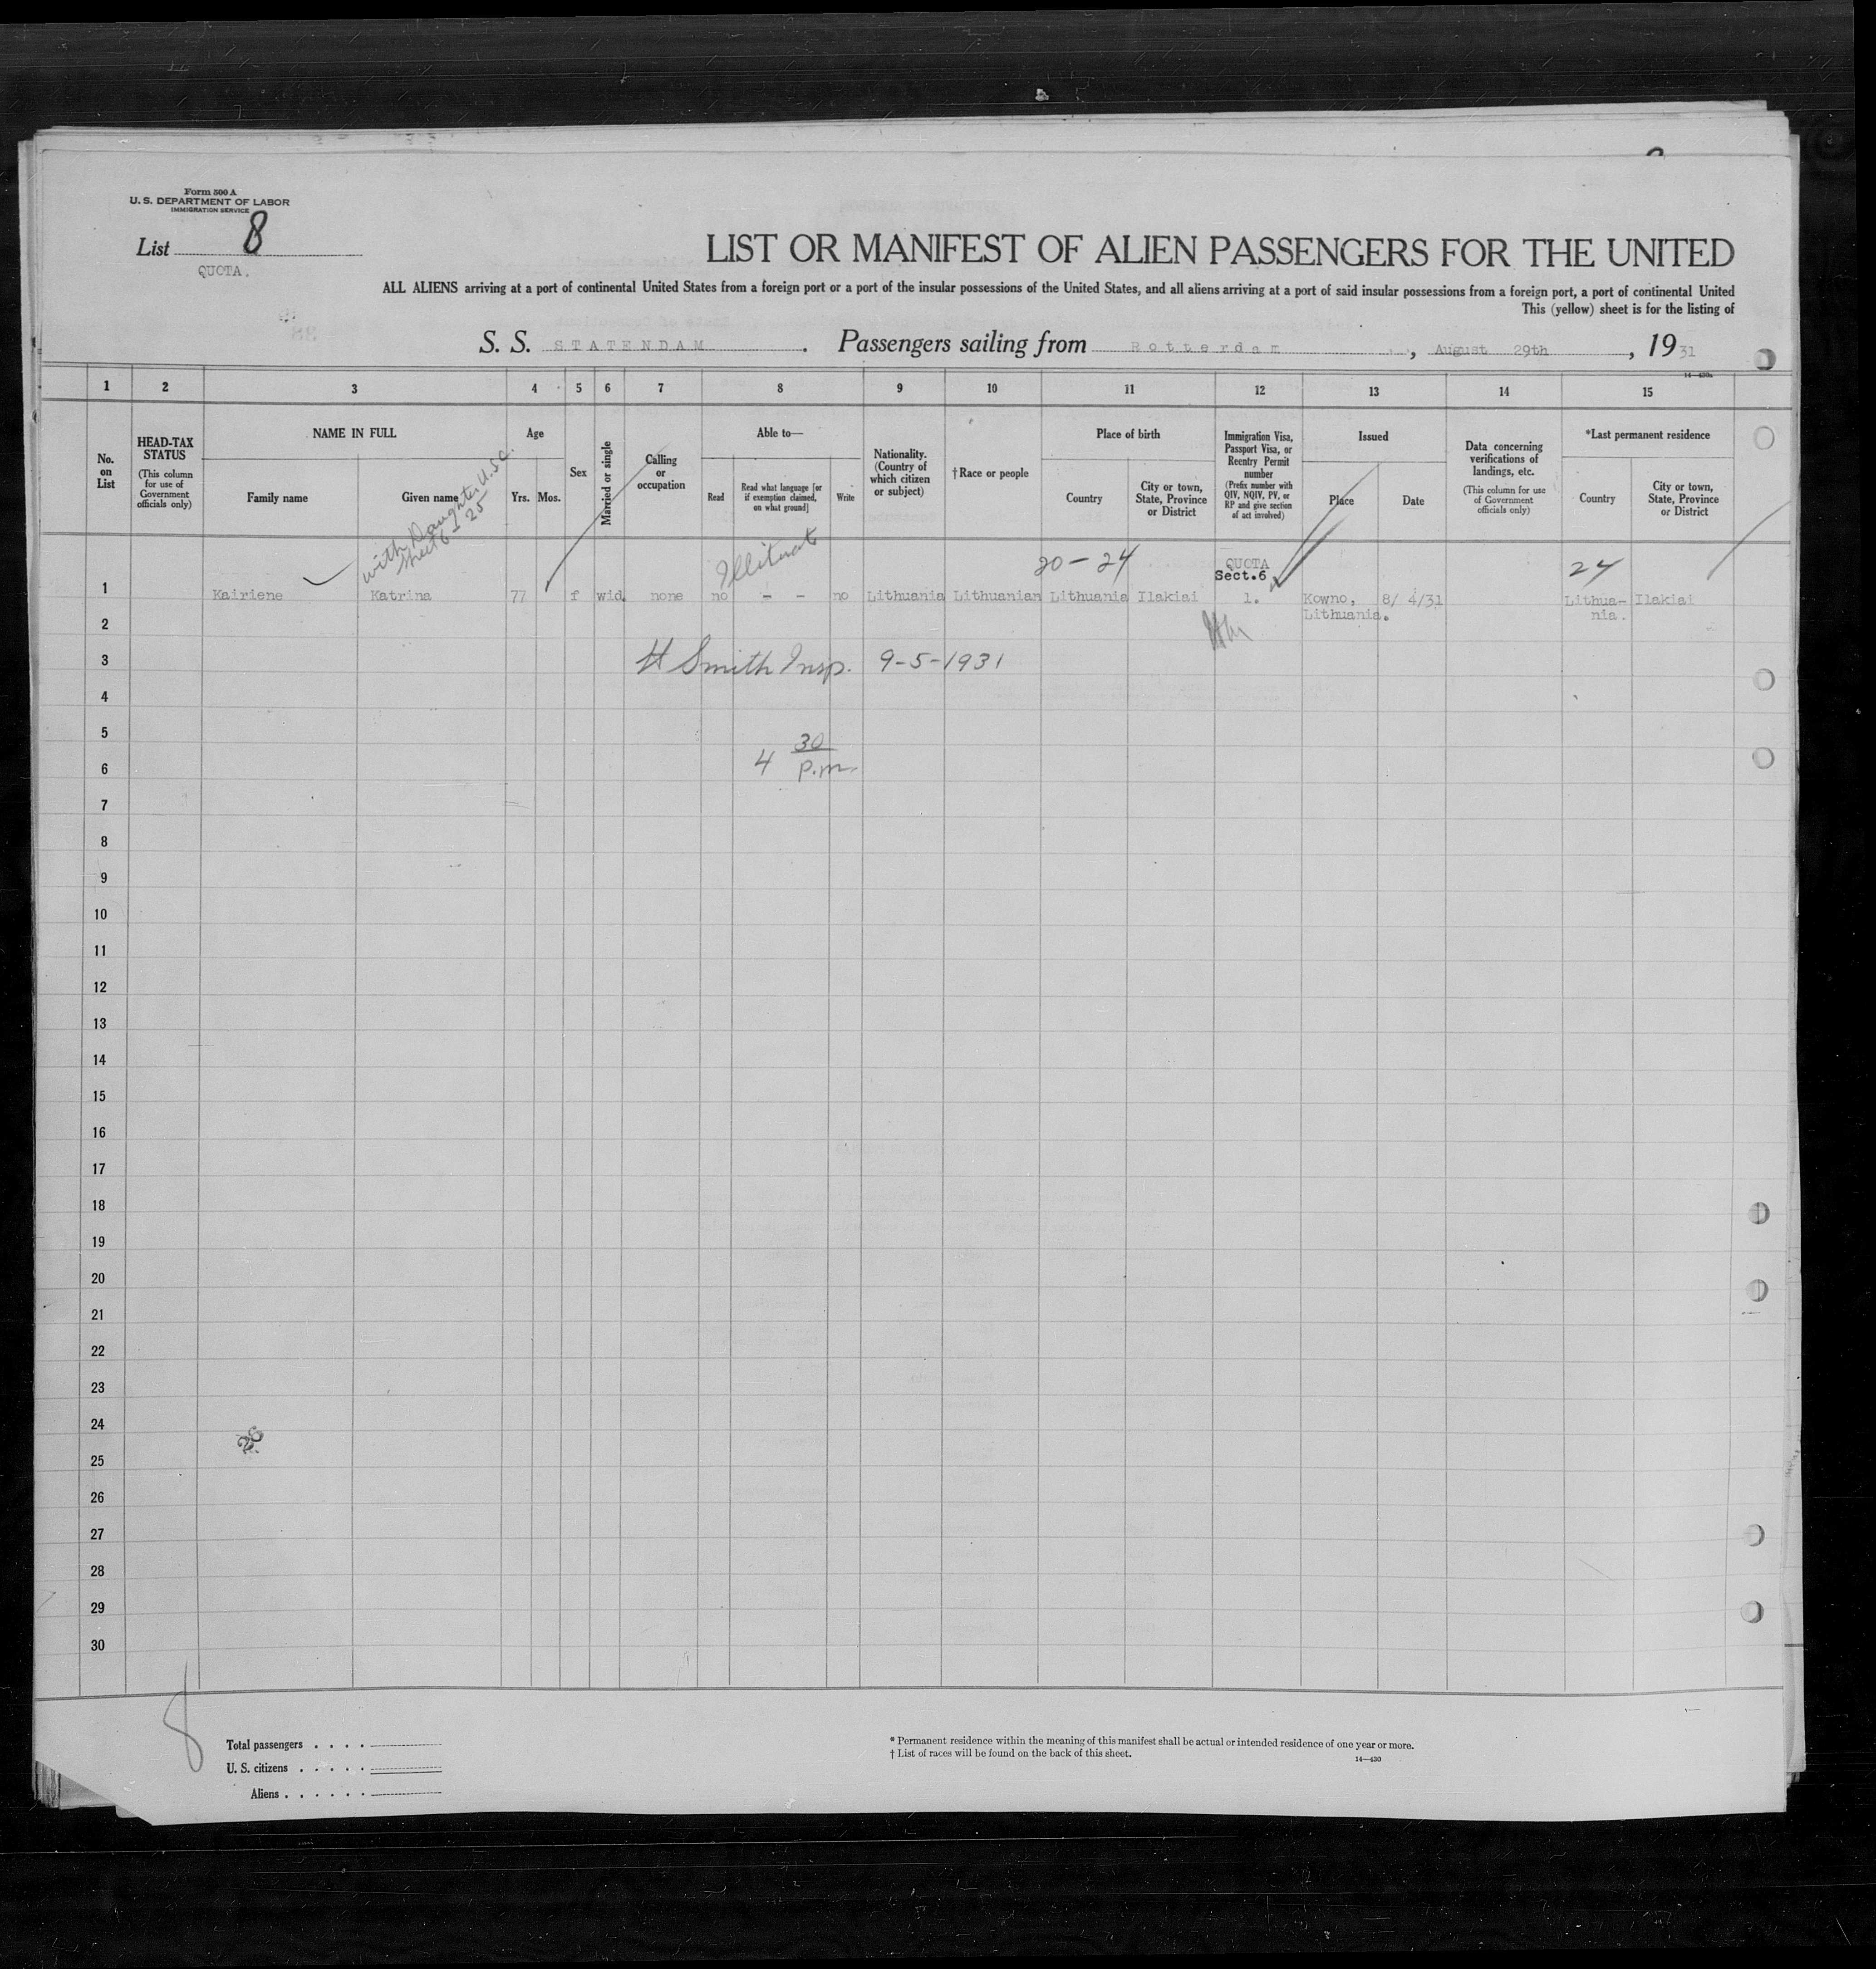 Form 500 A
U. S. DEPARTMENT OF LABOR
IMMIGRATION SERVICE
List 8
QUOTA.
LIST OR MANIFEST OF ALIEN PASSENGERS FOR THE UNITED
ALL ALIENS arriving at a port of continental United States from a foreign port or a port of the insular possessions of the United States, and all aliens arriving at a port of said insular possessions from a foreign port, a port of continental United
This (yellow) sheet is for the listing of
S. S. STATENDAM. Passengers sailing from Rotterdam, August 29th, 1931
14—430a
1 2 3 4 5 6 7 8 9 10 11 12 13 14 15
No. on List
HEAD-TAX STATUS
(This column for use of Government officials only)
NAME IN FULL
Family name
Given name
Age
Yrs. Mos.
Sex
Married or single
Calling or occupation
Able to—
Read
Read what language [or if exemption claimed, on what ground]
Write
Nationality. (Country of which citizen or subject)
†Race or people
Place of birth
Country
City or town, State, Province or District
Immigration Visa, Passport Visa, or Reentry Permit number
(Prefix number with QIV, NQIV, PV, or RP and give section of act involved)
Issued
Place
Date
Data concerning verifications of landings, etc.
(This column for use of Government officials only)
*Last permanent residence
Country
City or town, State, Province or District
with Daughter U.S.C.
Sheet 6 - 25
Illiterate
20 - 24
QUOTA
Sect.6
24
1 Kairiene Katrina 77 f wid. none no - - no Lithuania Lithuanian Lithuania Ilakiai 1. Kowno, 8/ 4/31 Lithua- Ilakiai
Lithuania. nia.
2
3 H Smith Insp. 9-5-1931
4
5
30
6 4 p.m.
7
8
9
10
11
12
13
14
15
16
17
18
19
20
21
22
23
24
25
26
27
28
29
30
8
Total passengers
U. S. citizens
Aliens
* Permanent residence within the meaning of this manifest shall be actual or intended residence of one year or more.
† List of races will be found on the back of this sheet.
14—430